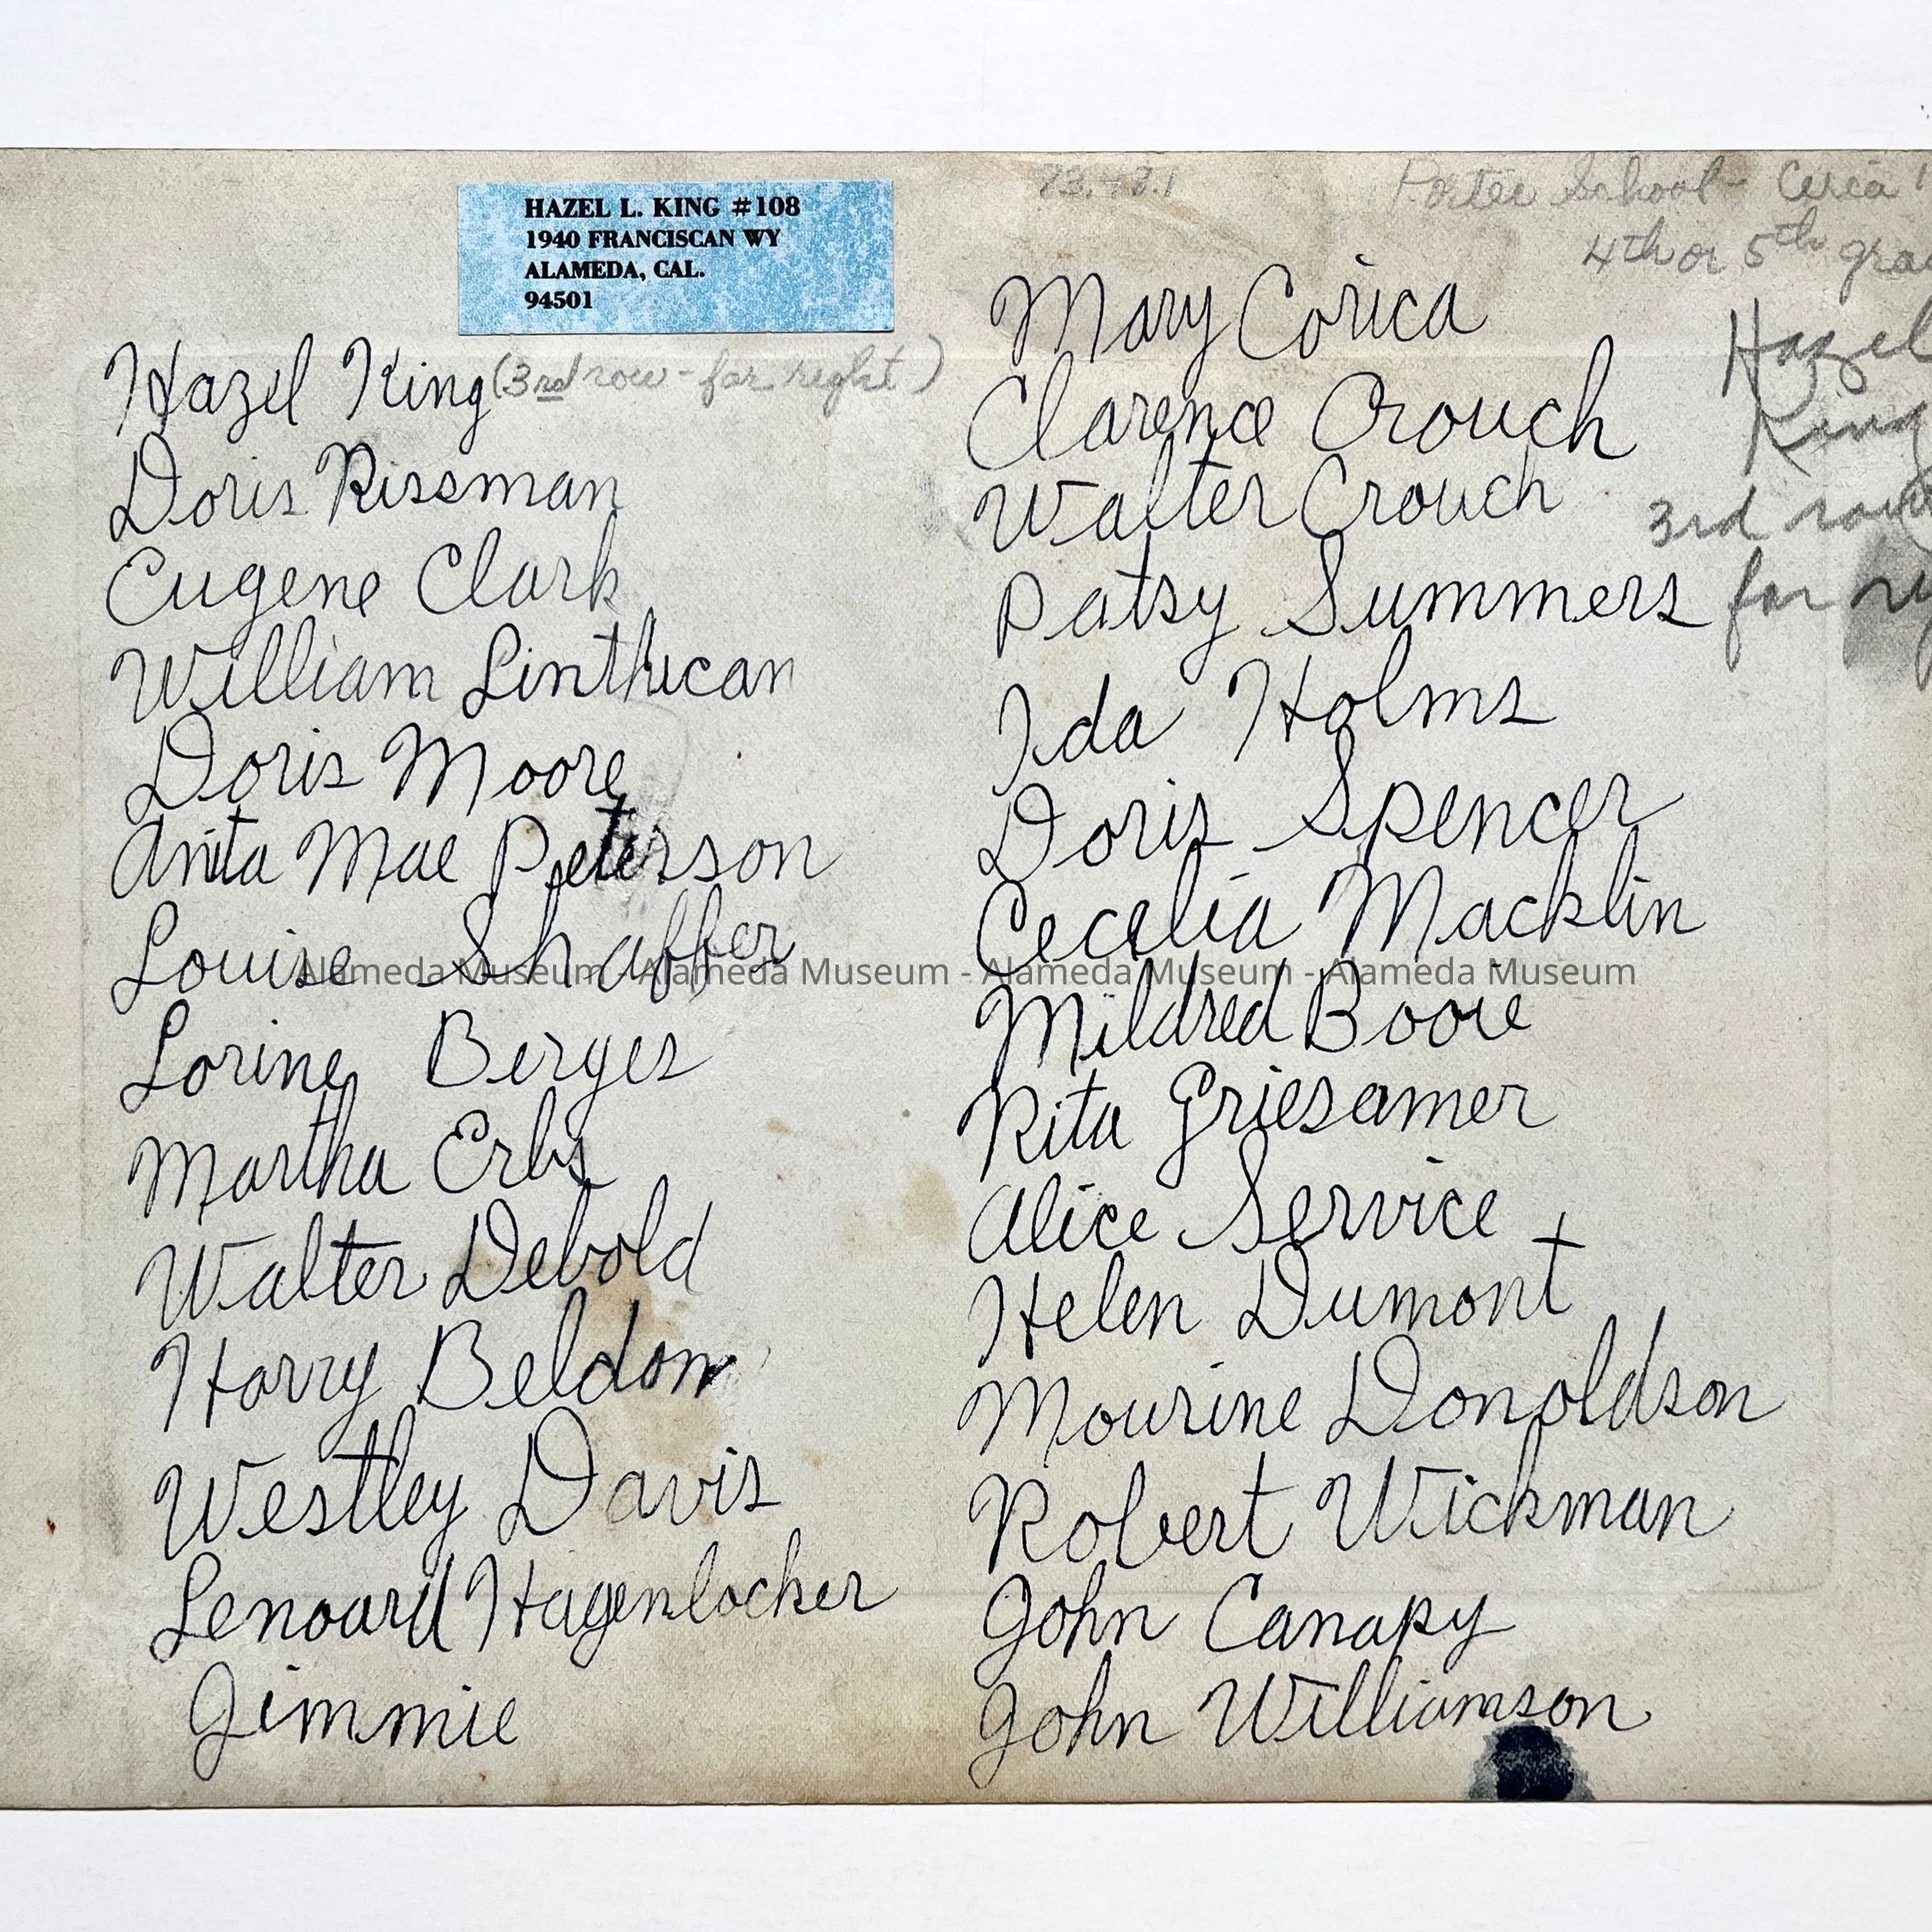 HAZEL L. KING #108
1940 FRANCISCAN WY
ALAMEDA, CAL.
94501
Hazel King (3rd row - far right)
Doris Rissman
Eugene Clark
William Linthican
Doris Moore
Anita Mae Peterson
Louise Shaffer
Lorine Berges
Martha Erbs
Walter Debold
Harry Beldom
Westley Davis
Lenoard Hagenlocker
Jimmie
Porter School - Circa
4th or 5th
Mary Corica
Clarence Crouch
Walter Crouch
Patsy Summers
Ida Holms
Doris Spencer
Cecelia Macklin
Mildred Booie
Rita Griesamer
Alice Service
Helen Dumont
Mourine Donoldson
Robert Wickman
John Canapy
John Williamson
Hazel
King
3rd row
far
Alameda Museum - Alameda Museum - Alameda Museum - Alameda Museum